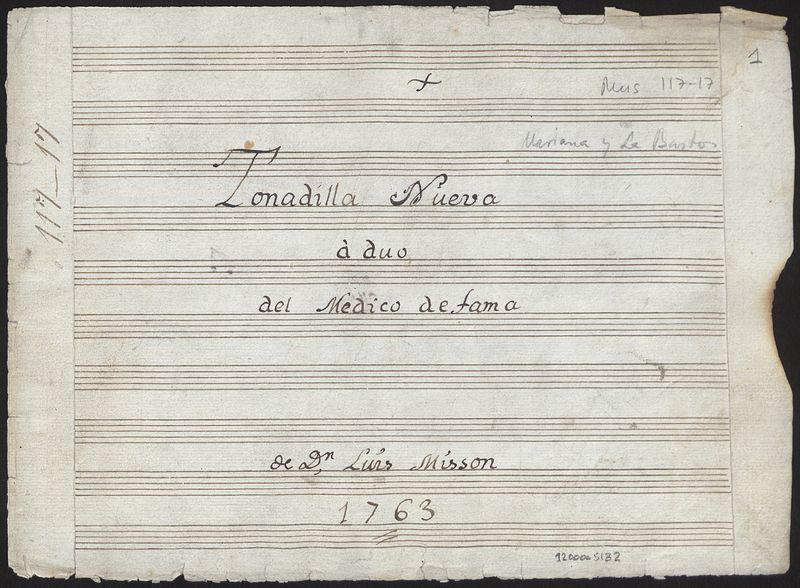 +
Mus 117-17
1
Mariana y La Bastos
117-17
Tonadilla Nueva
à duo
del Médico de fama
de Dn Luis Misson
1763
1200005132